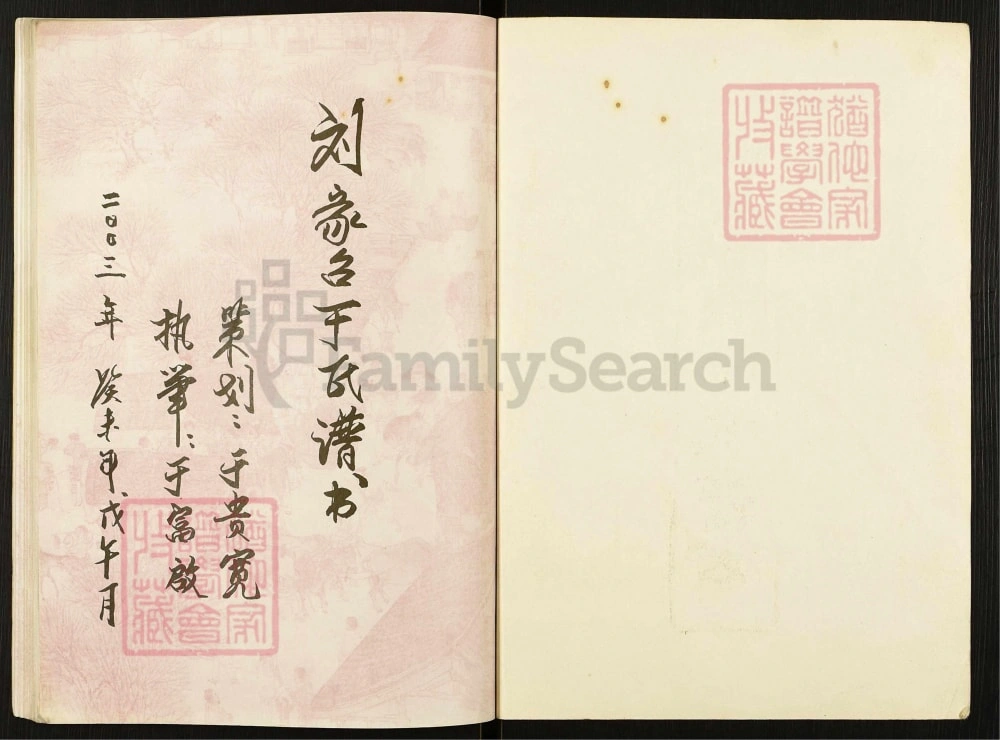 猶他家
譜學會
收藏
刘家台于氏谱书
策划：于貴宽
执筆：于富啟
二００三年 癸未年戊午月
猶他家
譜學會
收藏
FamilySearch